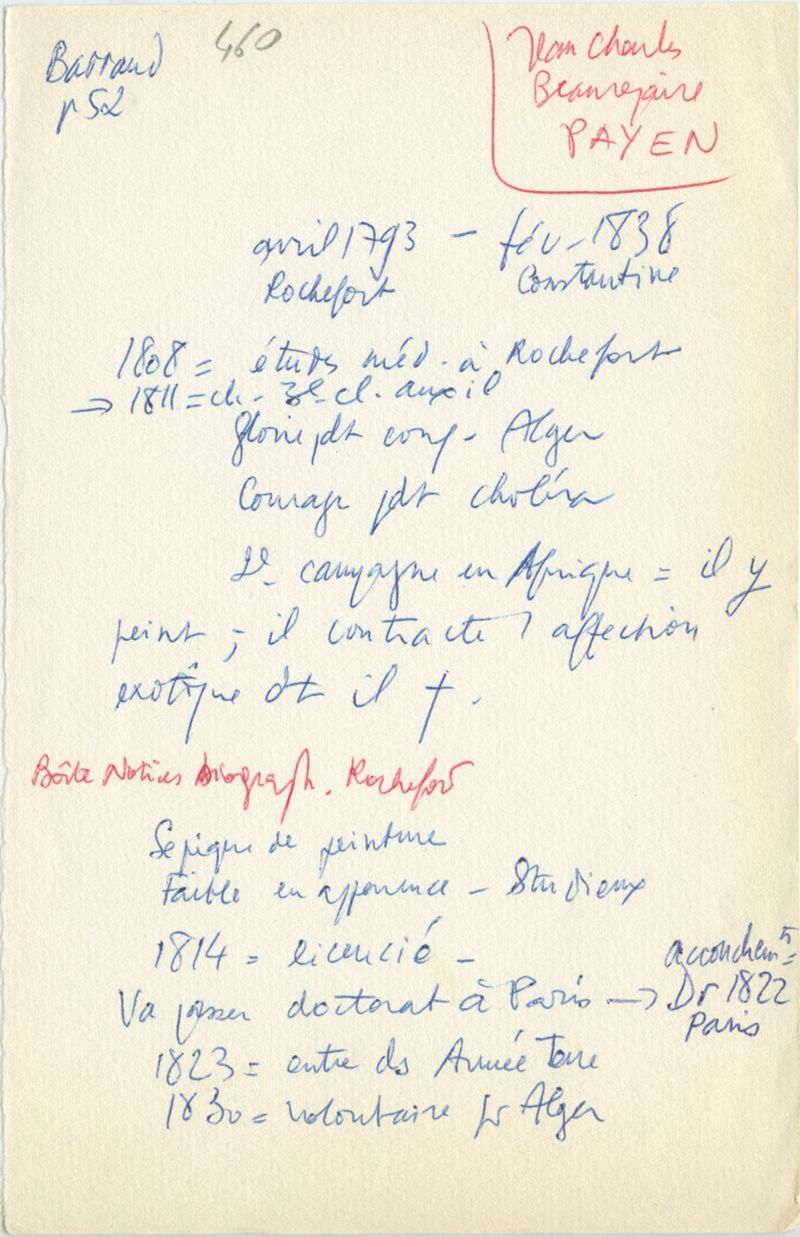 Barraud
p 52
460
Jean Charles
Beaurepaire
PAYEN
avril 1793 - fév. 1838
Rochefort Constantine
1808 = études méd. à Rochefort
→ 1811 = ch. 3e cl. auxil
gloire pdt conq. Alger
Courage pdt choléra
2e campagne en Afrique = il y
peint ; il contracte 1 affection
exotique dt il †.
Boîte Notices biograph. Rochefort
Se pique de peinture
Faible en apparence - Studieux
1814 = licencié -
Va passer doctorat à Paris → Dr 1822
accouchemts =
Paris
1823 = entre ds Armée Terre
1830 = volontaire pr Alger